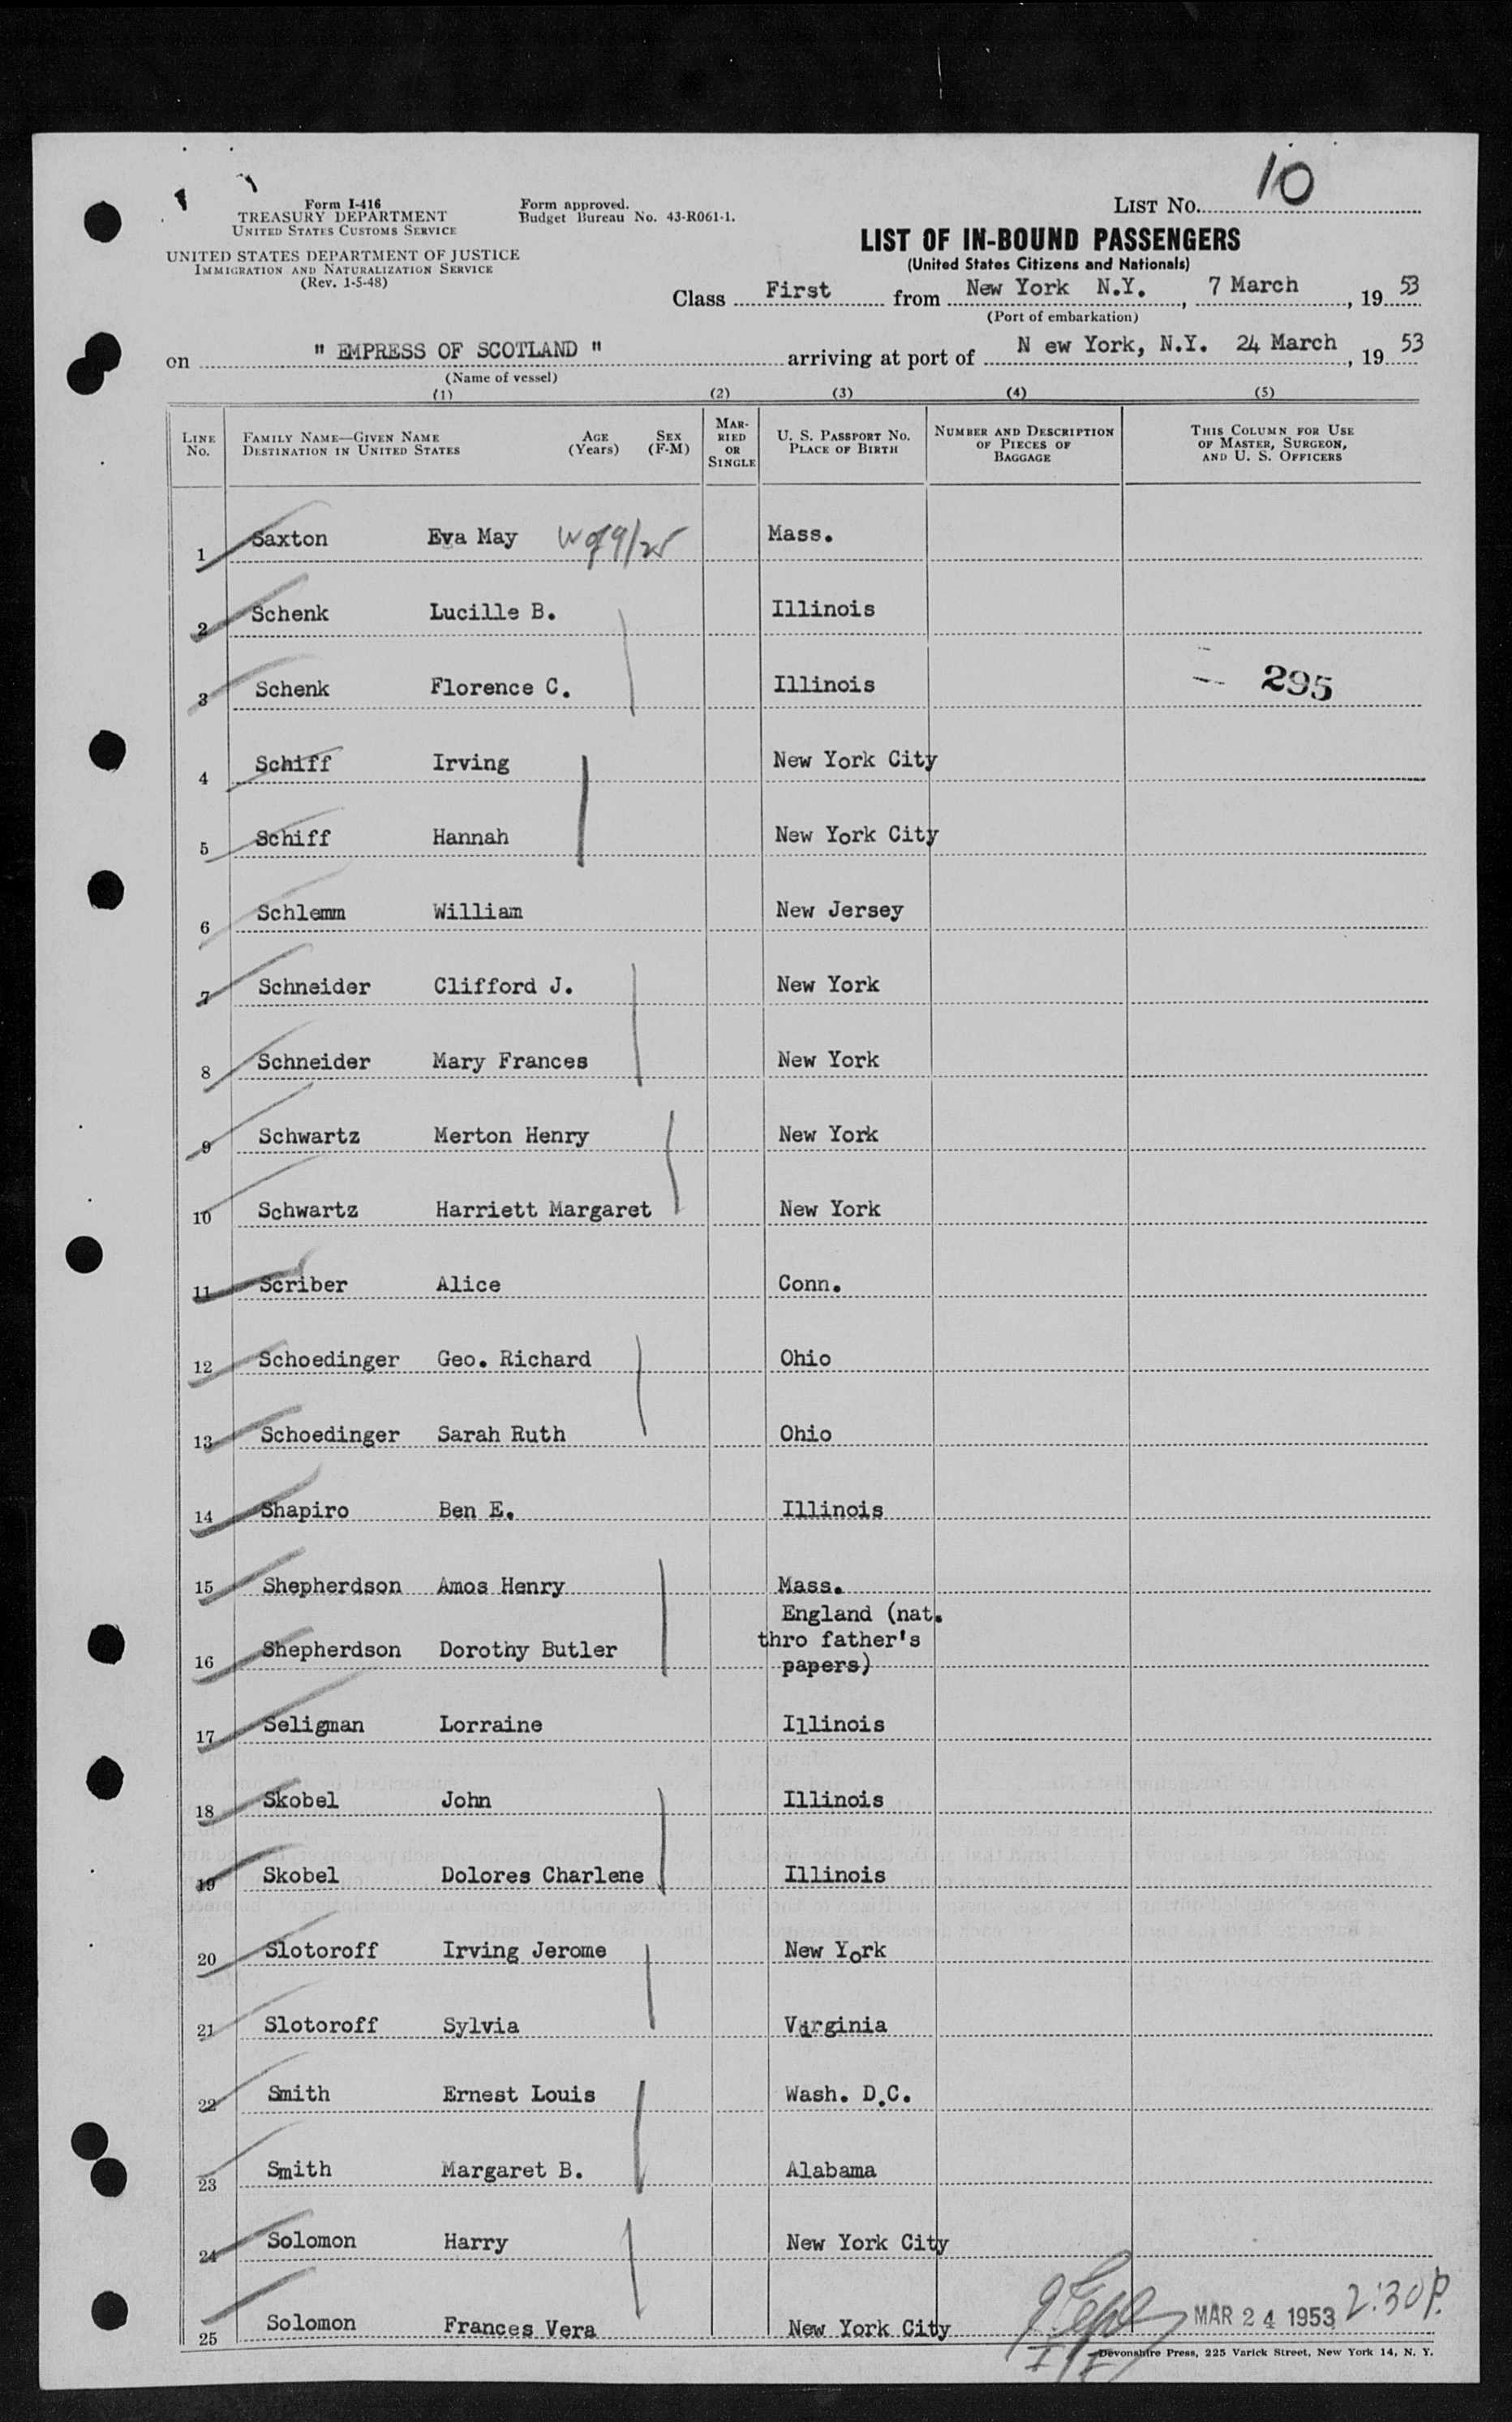 10
Form I-416
TREASURY DEPARTMENT
UNITED STATES CUSTOMS SERVICE
UNITED STATES DEPARTMENT OF JUSTICE
IMMIGRATION AND NATURALIZATION SERVICE
(Rev. 1-5-48)
Form approved.
Budget Bureau No. 43-R061-1.
LIST No.
LIST OF IN-BOUND PASSENGERS
(United States Citizens and Nationals)
Class First from New York N.Y. , 7 March , 19 53
(Port of embarkation)
on " EMPRESS OF SCOTLAND " arriving at port of N ew York, N.Y. 24 March , 19 53
(Name of vessel)
(1) (2) (3) (4) (5)
LINE No. FAMILY NAME—GIVEN NAME DESTINATION IN UNITED STATES AGE (Years) SEX (F-M) MARRIED OR SINGLE U. S. PASSPORT No. PLACE OF BIRTH NUMBER AND DESCRIPTION OF PIECES OF BAGGAGE THIS COLUMN FOR USE OF MASTER, SURGEON, AND U. S. OFFICERS
1 Saxton Eva May Mass.
2 Schenk Lucille B. Illinois
3 Schenk Florence C. Illinois 295
4 Schiff Irving New York City
5 Schiff Hannah New York City
6 Schlemm William New Jersey
7 Schneider Clifford J. New York
8 Schneider Mary Frances New York
9 Schwartz Merton Henry New York
10 Schwartz Harriett Margaret New York
11 Scriber Alice Conn.
12 Schoedinger Geo. Richard Ohio
13 Schoedinger Sarah Ruth Ohio
14 Shapiro Ben E. Illinois
15 Shepherdson Amos Henry Mass.
England (nat.
16 Shepherdson Dorothy Butler thro father's
papers)
17 Seligman Lorraine Illinois
18 Skobel John Illinois
19 Skobel Dolores Charlene Illinois
20 Slotoroff Irving Jerome New York
21 Slotoroff Sylvia Virginia
22 Smith Ernest Louis Wash. D.C.
23 Smith Margaret B. Alabama
24 Solomon Harry New York City
25 Solomon Frances Vera New York City
MAR 24 1953 2:30P.
Devonshire Press, 225 Varick Street, New York 14, N. Y.